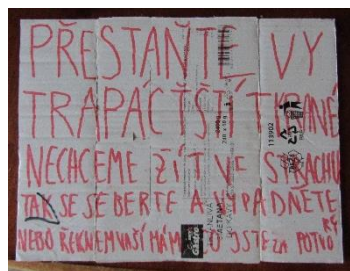 PŘESTAŇTE VY
TRAPÁČŠTÍ TYRANÉ
NECHCEME ŽÍT VE STRACHU
TAK SE SEBERTE A VYPADNĚTE
NEBO ŘEKNEM VAŠÍ MÁMĚ JSTE ZA POTVORY
113902